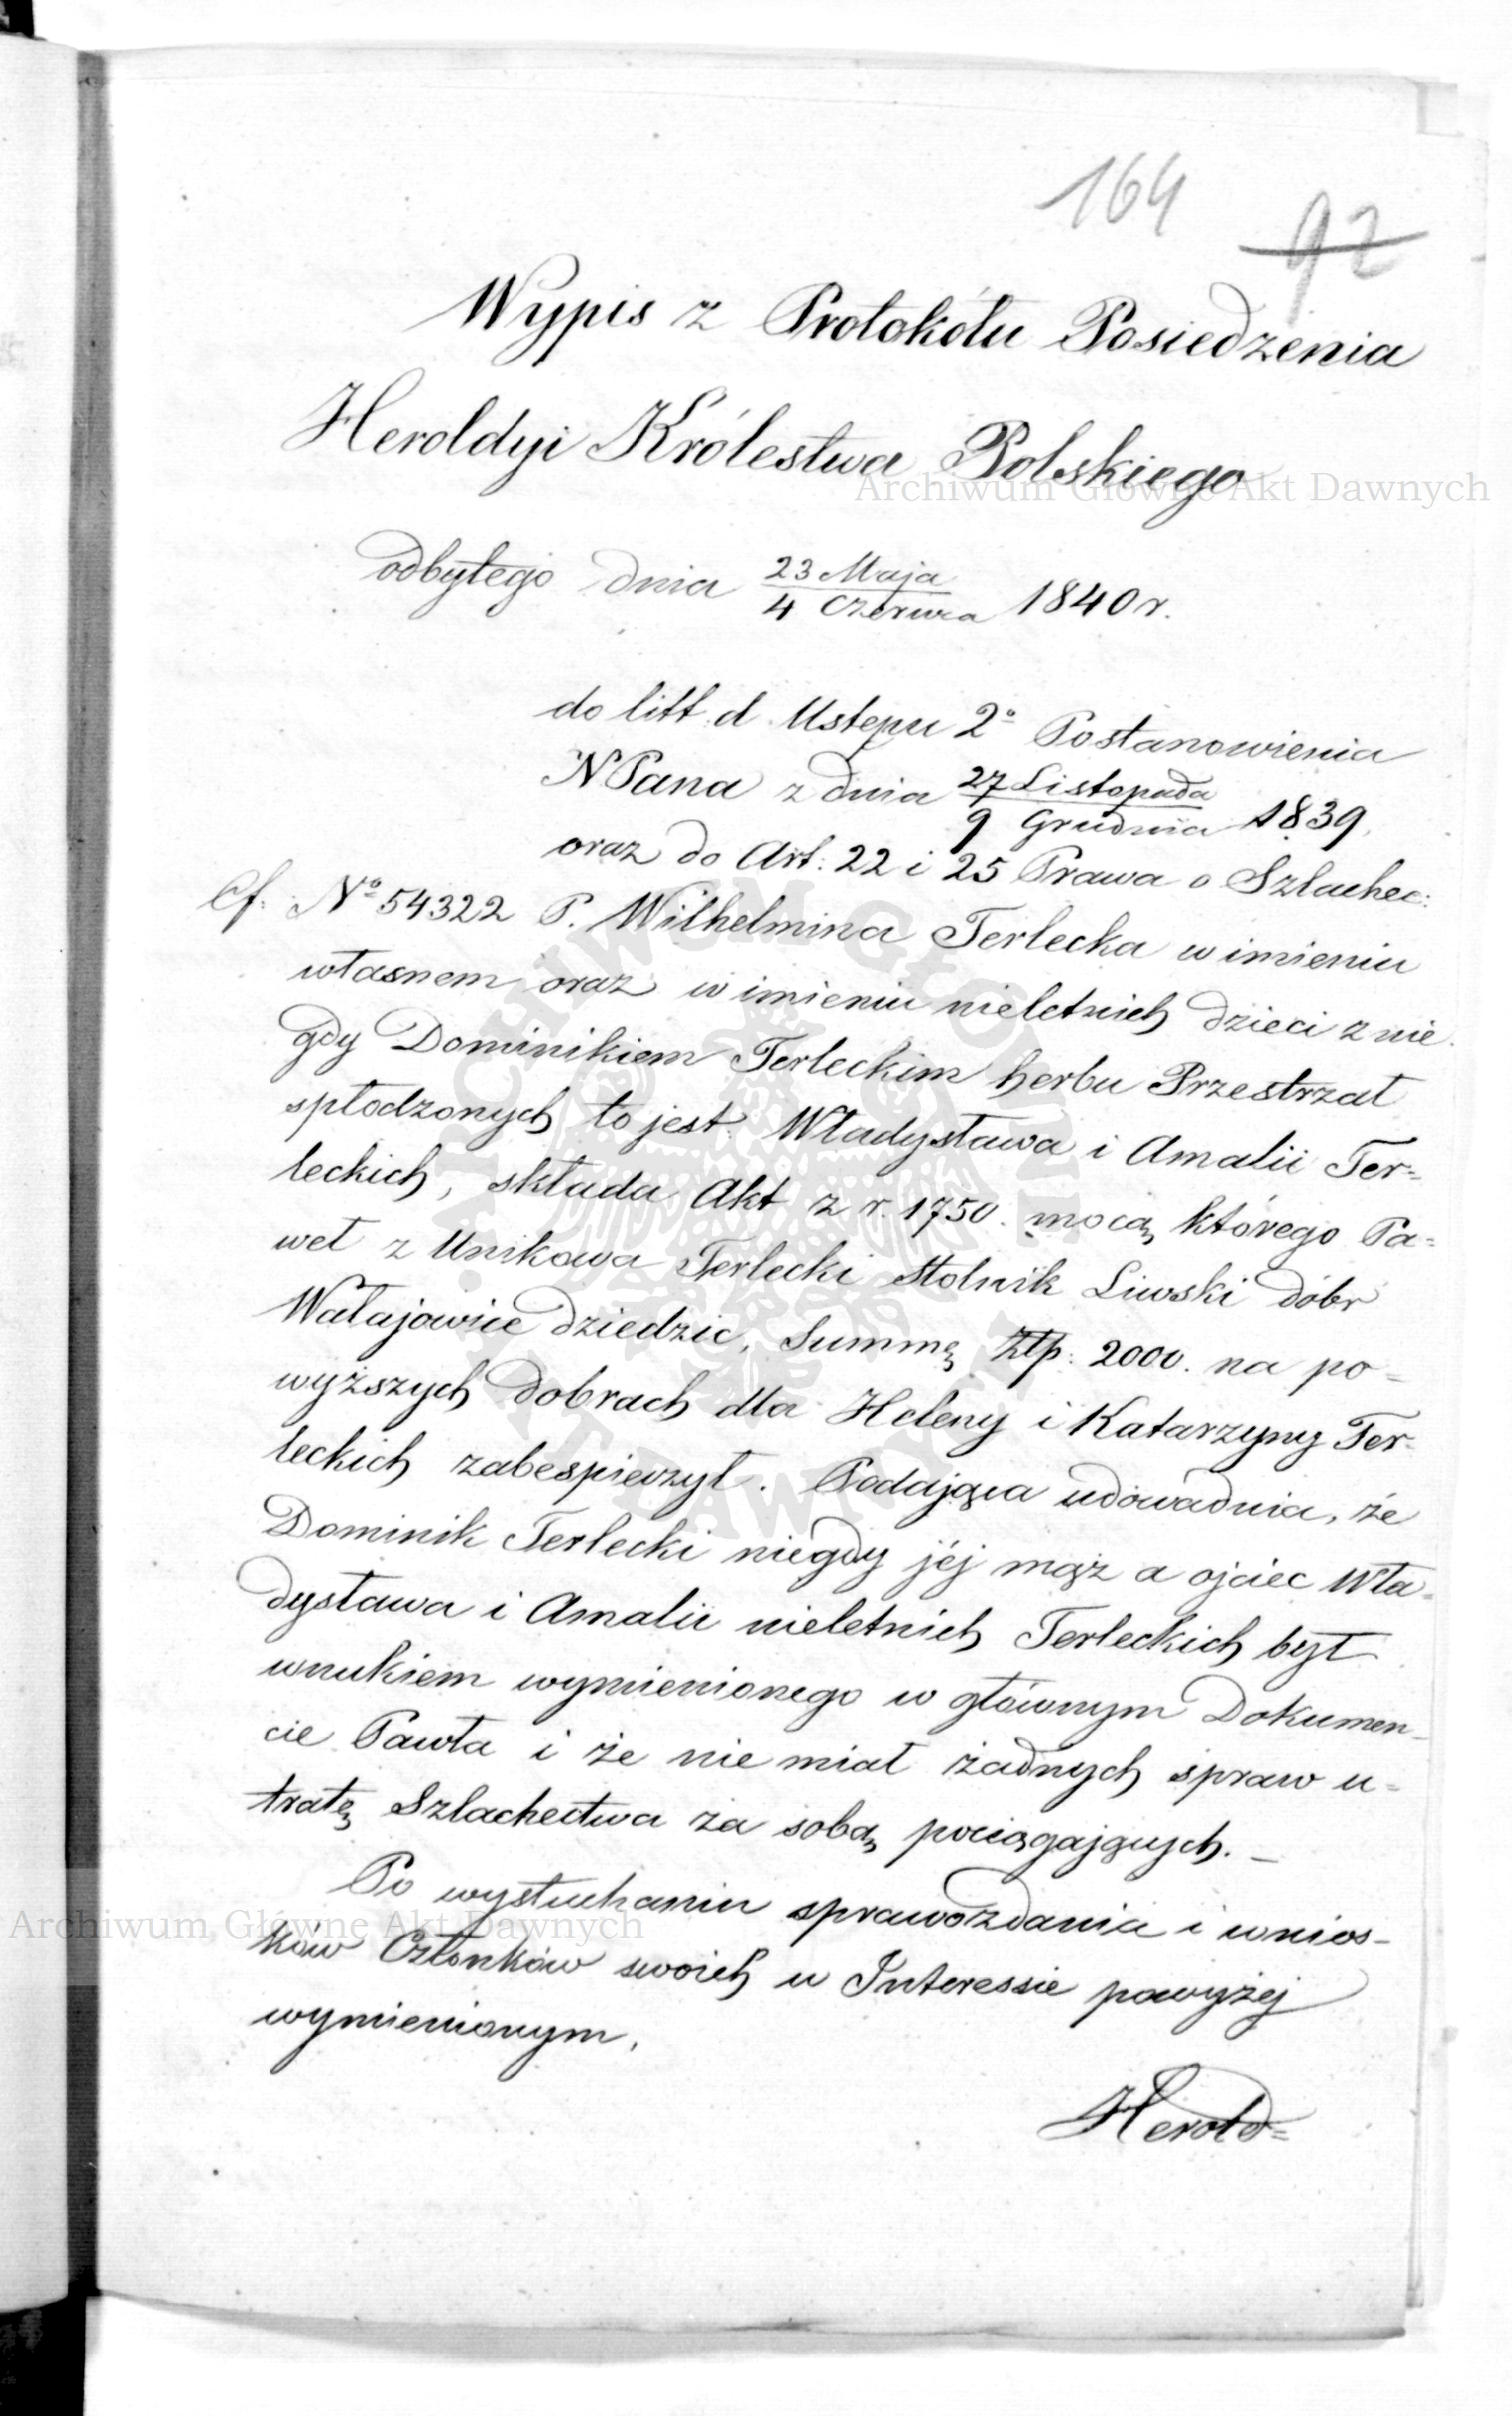 164
92
Wypis z Protokółu Posiedzenia
Heroldyi Królestwa Polskiego
Archiwum Główne Akt Dawnych
odbyłego dnia 23 Maja / 4 Czerwca 1840 r.
do litt. d Ustępu 2º Postanowienia
NPana z dnia 27 Listopada / 9 Grudnia 1839,
oraz do Art: 22 i 25 Prawa o Szlachec:
Cf. Nº 54322 P. Wilhelmina Terlecka w imieniu
własnem oraz w imieniu nieletnich dzieci z nie
gdy Dominikiem Terleckim herbu Przestrzał
spłodzonych to jest: Władysława i Amalii Ter=
leckich, składa Akt z r. 1750. mocą którego Pa=
weł z Unikowa Terlecki Stolnik Liwski dóbr
Watajowice dziedzic, Summę Złp: 2000. na po=
wyższych dobrach dla Heleny i Katarzyny Ter=
leckich zabespieczył. Podająca udowadnia, że
Dominik Terlecki niegdy jéj mąż a ojciec Wła=
dysława i Amalii nieletnich Terleckich był
wnukiem wymienionego w głównym Dokumen=
cie Pawła i że nie miał żadnych spraw u=
tratę Szlachectwa za sobą pociągających. _
Po wysłuchaniu sprawozdania i wnios=
Archiwum Główne Akt Dawnych
ków Członków swoich w Interessie powyżej
wymienionym,
Herold=
ARCHIWUM GŁÓWNE AKT DAWNYCH